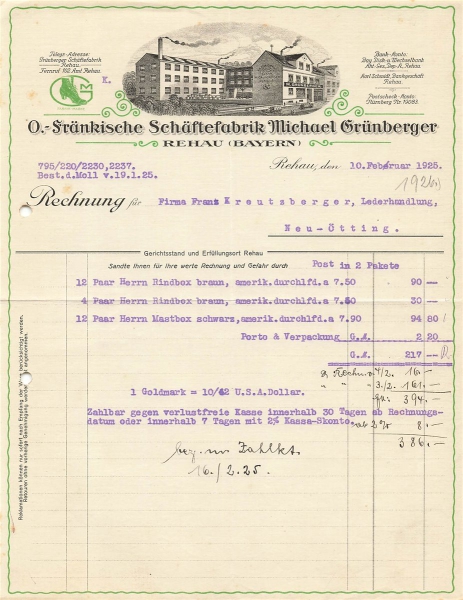 Telegr.-Adresse:
Grünberger Schäftefabrik
Rehau.
Fernruf 102 Amt Rehau.
K.
G
M
Bank-Konto:
Bay. Disk.- u. Wechselbank
Abt.-Ges., Dep.-K. Rehau
Karl Schmidt, Bankgeschäft
Rehau.
Postscheck-Konto:
Nürnberg Nr. 19083.
O.-Fränkische Schäftefabrik Michael Grünberger
REHAU (BAYERN)
795/220/2230,2237.
Best.d.Moll v.19.1.25.
Rehau, den 10.Februar 1925.
Rechnung für Firma Franz Kreutzberger, Lederhandlung,
Neu-Ötting.
Gerichtsstand und Erfüllungsort Rehau
Sandte Ihnen für Ihre werte Rechnung und Gefahr durch Post in 2 Pakete
12 Paar Herrn Rindbox braun, amerik.durchlfd.a 7.50 90 —
4 Paar Herrn Rindbox braun, amerik.durchlfd.a 7.50 30 —
12 Paar Herrn Mastbox schwarz,amerik.durchlfd.a 7.90 94 80
Porto & Verpackung G.M. 2 20
G.M. 217 —
1 Goldmark = 10/42 U.S.A.Dollar.
16.—
3./2. 161.—
394.—
Zahlbar gegen verlustfreie Kasse innerhalb 30 Tagen ab Rechnungs-
datum oder innerhalb 7 Tagen mit 2% Kassa-Skonto.
ab 2% 8.—
386.—
Zahlkt.
16./2.25.
Reklamationen können nur sofort nach Empfang der Ware berücksichtigt werden.
Retouren ohne vorherige Genehmigung werden nicht angenommen.